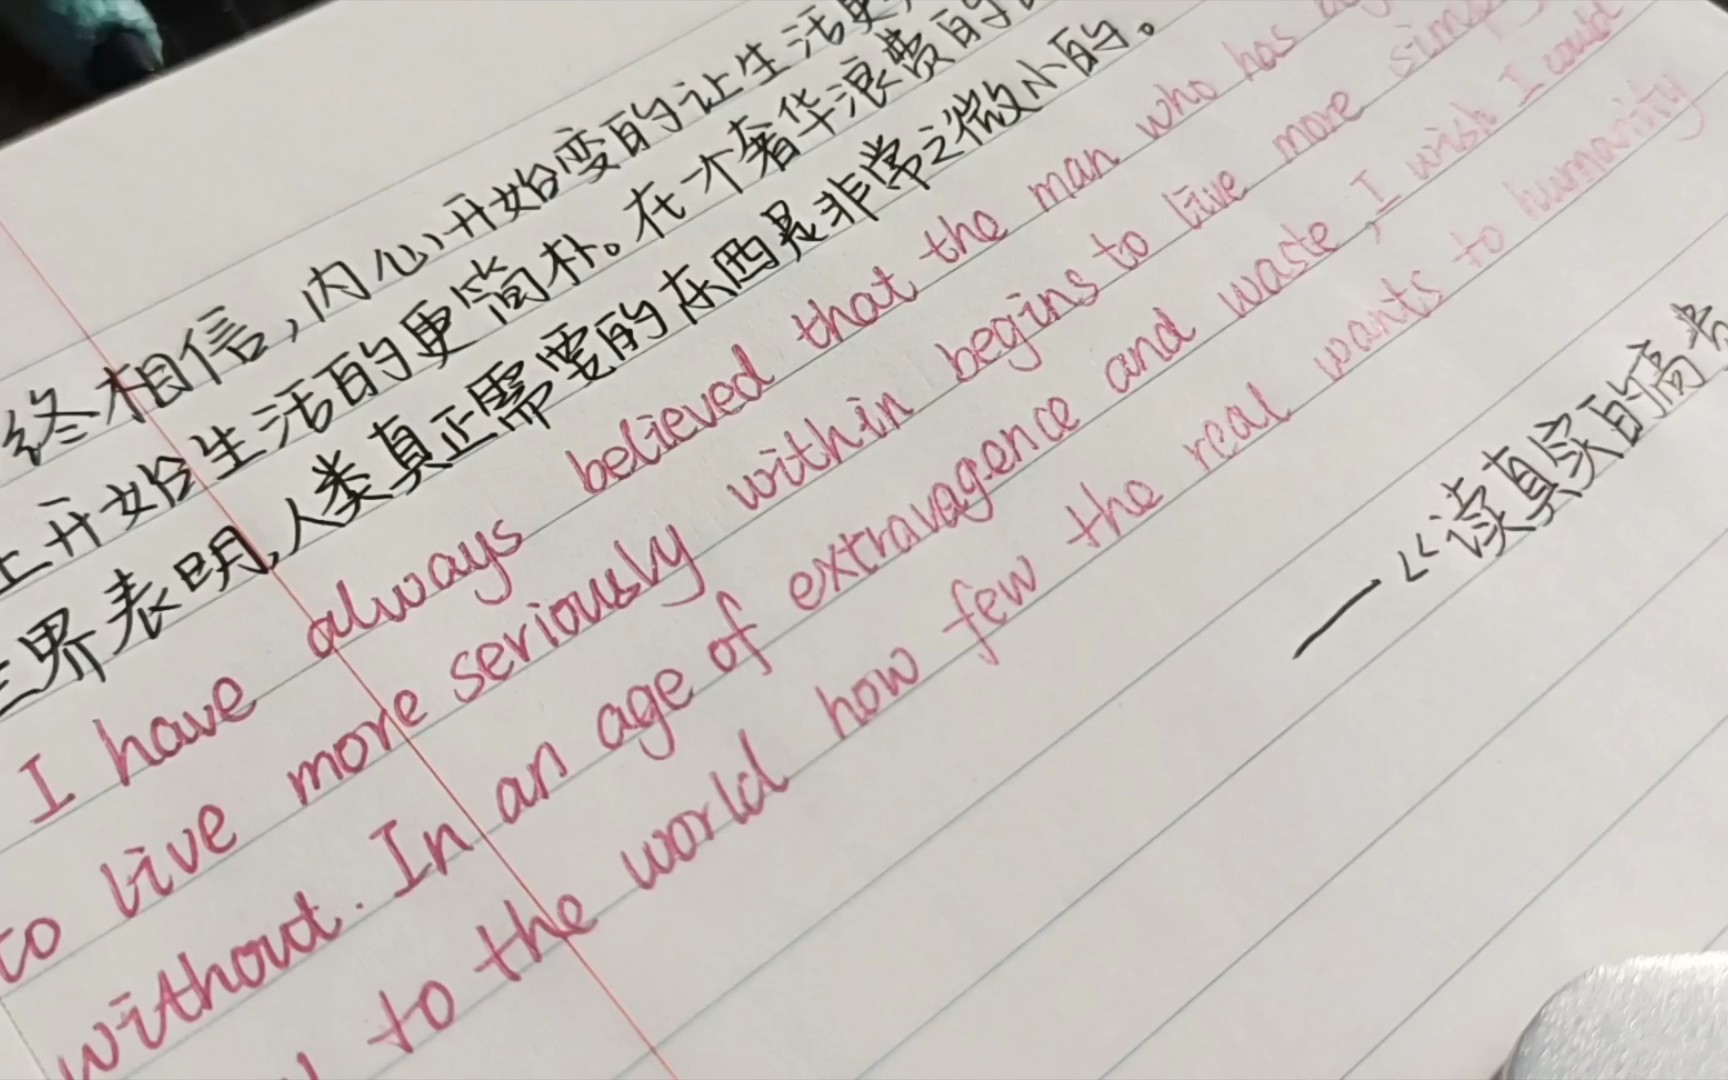 终相信，内心开始变的让生活更
上开始生活的更简朴。在一个奢华浪费的
世界表明，人类真正需要的东西是非常之微小的。
I have always believed that the man who has
to live more seriously within begins to live more
without. In an age of extravagence and waste, I wish I could
to the world how few the real wants to humanity
—《读真实的高贵